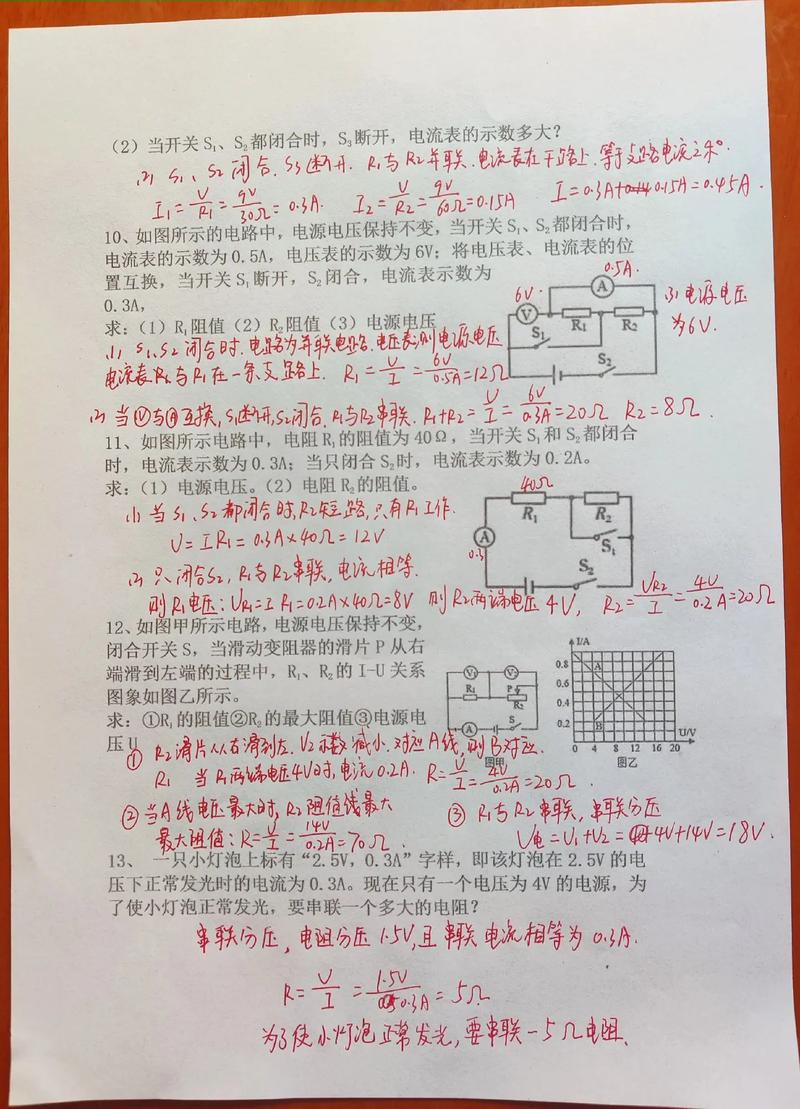 （2）当开关S₁、S₂都闭合时，S₃断开，电流表的示数多大？
(2) S₁、S₂闭合.S₃断开. R₁与R₂并联.电流表在干路上.等于支路电流之和.
I₁=U/R₁=9V/30Ω=0.3A. I₂=U/R₂=9V/60Ω=0.15A I=0.3A+0.15A=0.45A.
10、如图所示的电路中，电源电压保持不变，当开关S₁、S₂都闭合时，
电流表的示数为0.5A，电压表的示数为6V；将电压表、电流表的位
置互换，当开关S₁断开，S₂闭合，电流表示数为
0.3A，
求：（1）R₁阻值（2）R₂阻值（3）电源电压
(1) S₁、S₂闭合时.电路为并联电路.电压表测电源电压
电流表与R₁在一条支路上. R₁=U/I=6V/0.5A=12Ω
6V 0.5A
A
V R₁ R₂
S₁
S₂
(3) 电源电压
为6V.
(2) 当V与A互换，S₁断开，S₂闭合.R₁与R₂串联. R₁+R₂=U/I=6V/0.3A=20Ω R₂=8Ω.
11、如图所示电路中，电阻R₁的阻值为40Ω，当开关S₁和S₂都闭合
时，电流表示数为0.3A；当只闭合S₂时，电流表示数为0.2A。
求：（1）电源电压。（2）电阻R₂的阻值。
(1) 当S₁、S₂都闭合时，R₂短路，只有R₁工作.
U=IR₁=0.3A×40Ω=12V
40Ω
R₁ R₂
A S₁
0.3
S₂
(2) 只闭合S₂，R₁与R₂串联，电流相等.
则R₁电压：UR₁=IR₁=0.2A×40Ω=8V 则R₂两端电压4V, R₂=UR₂/I=4V/0.2A=20Ω
12、如图甲所示电路，电源电压保持不变，
闭合开关S，当滑动变阻器的滑片P从右
端滑到左端的过程中，R₁、R₂的I-U关系
图象如图乙所示。
求：①R₁的阻值②R₂的最大阻值③电源电
压U
V₁ V₂
R₁ P R₂
A S
图甲
I/A
0.8 A
0.6
0.4
0.2 B
0 4 8 12 16 20 U/V
图乙
① R₂滑片从右滑到左.V₂示数减小.对应A线，则B对应
R₁ 当R₁两端电压4V时，电流0.2A. R=U/I=4V/0.2A=20Ω.
② 当A线电压最大时，R₂阻值最大
最大阻值：R=U/I=14V/0.2A=70Ω.
③ R₁与R₂串联，串联分压
U电=U₁+U₂=4V+14V=18V.
13、 一只小灯泡上标有“2.5V，0.3A”字样，即该灯泡在2.5V的电
压下正常发光时的电流为0.3A。现在只有一个电压为4V的电源，为
了使小灯泡正常发光，要串联一个多大的电阻？
串联分压，电阻分压1.5V，且串联电流相等为0.3A.
R=U/I=1.5V/0.3A=5Ω
为了使小灯泡正常发光，要串联一5Ω电阻.